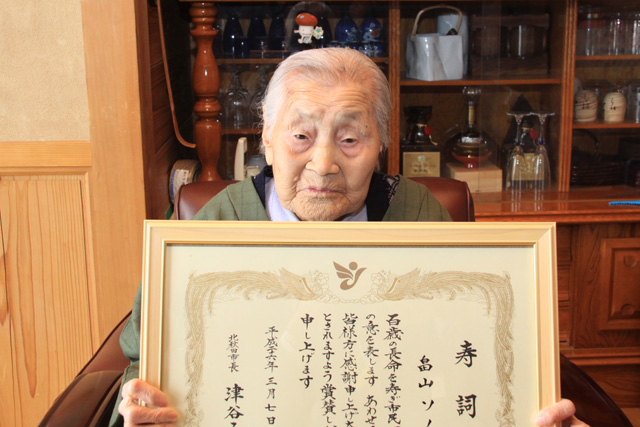 寿詞
畠山ソノ
百歳の長命を寿ぎ市民
の意を表します あわせ
皆様方に感謝申し上げ
とされますよう賞賛し
申し上げます
平成二十六年三月七日
北秋田市長
津谷